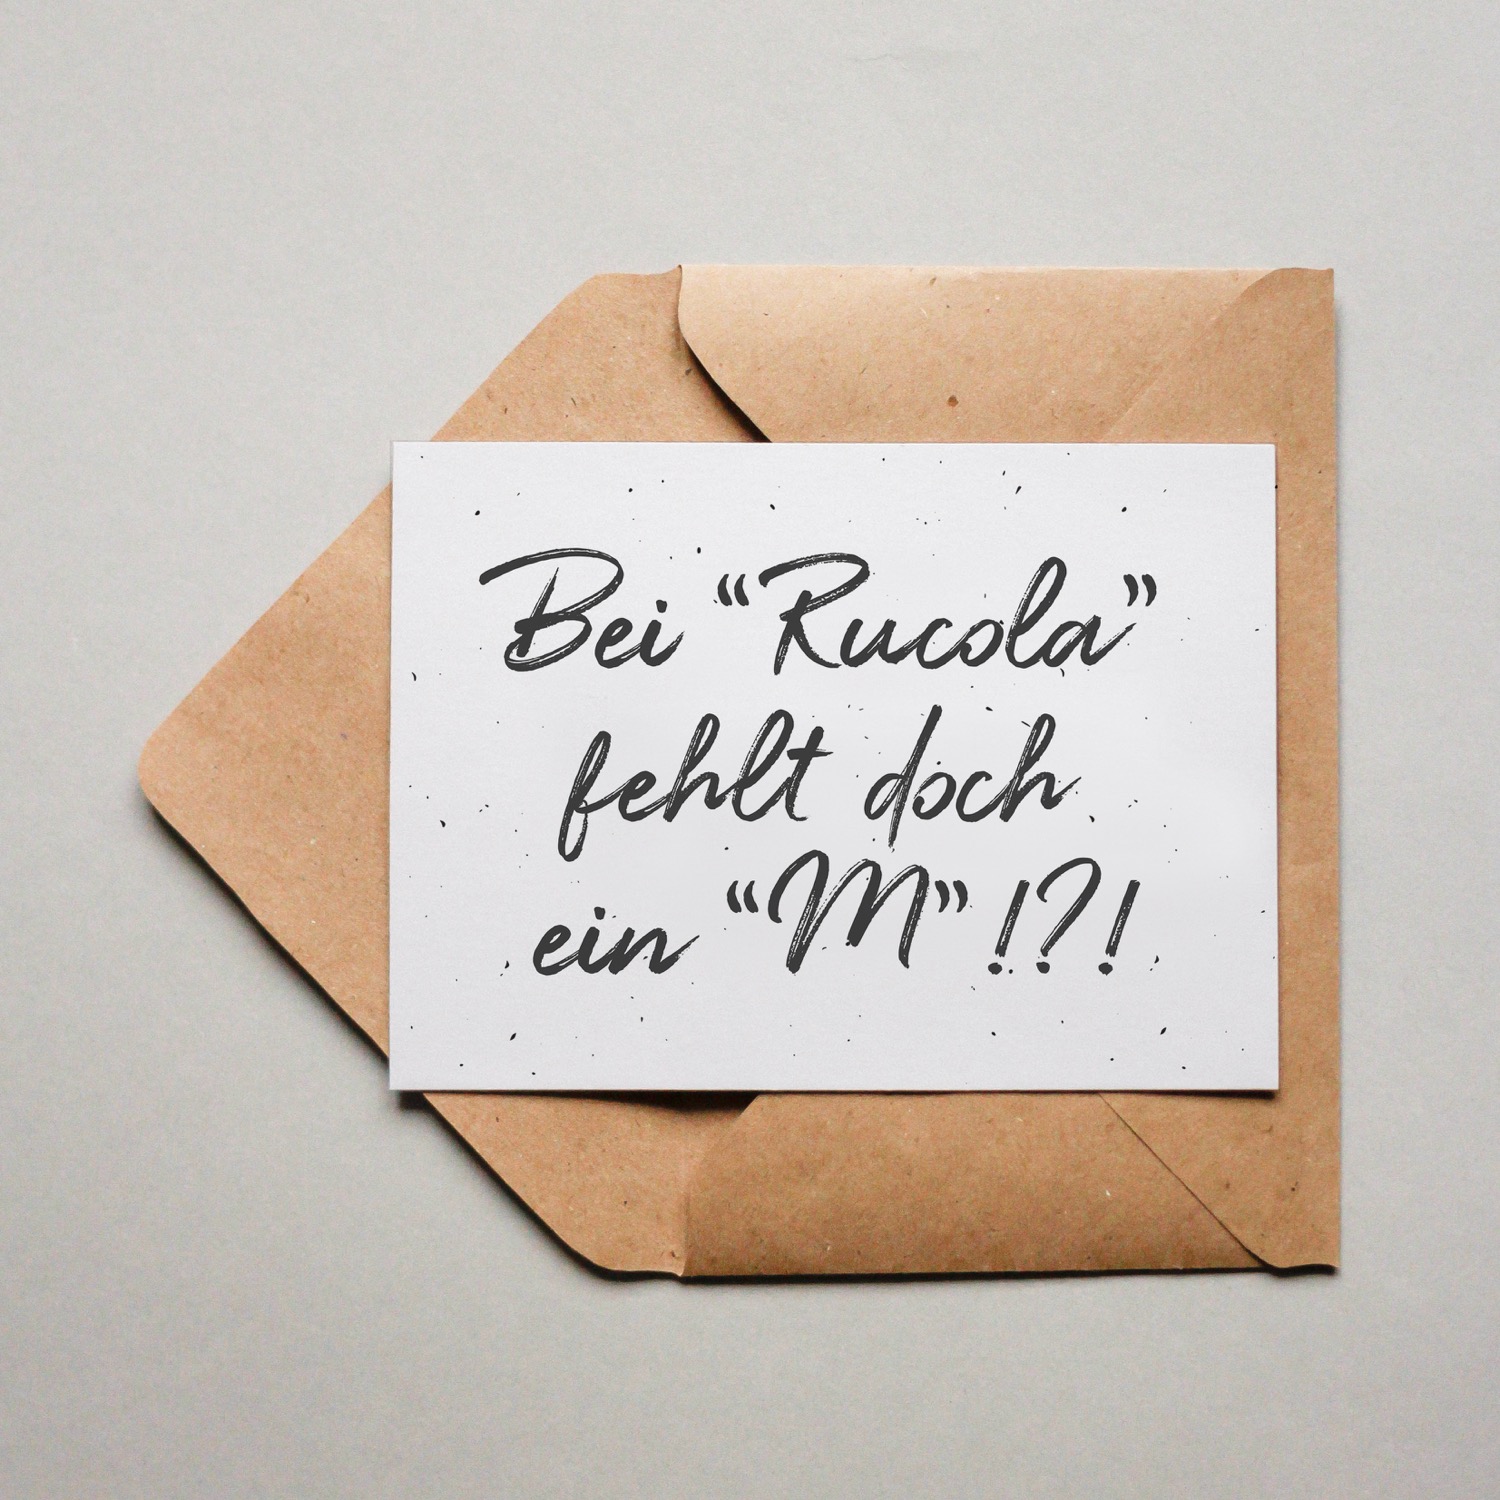 Bei “Rucola”
fehlt doch
ein “M” !?!